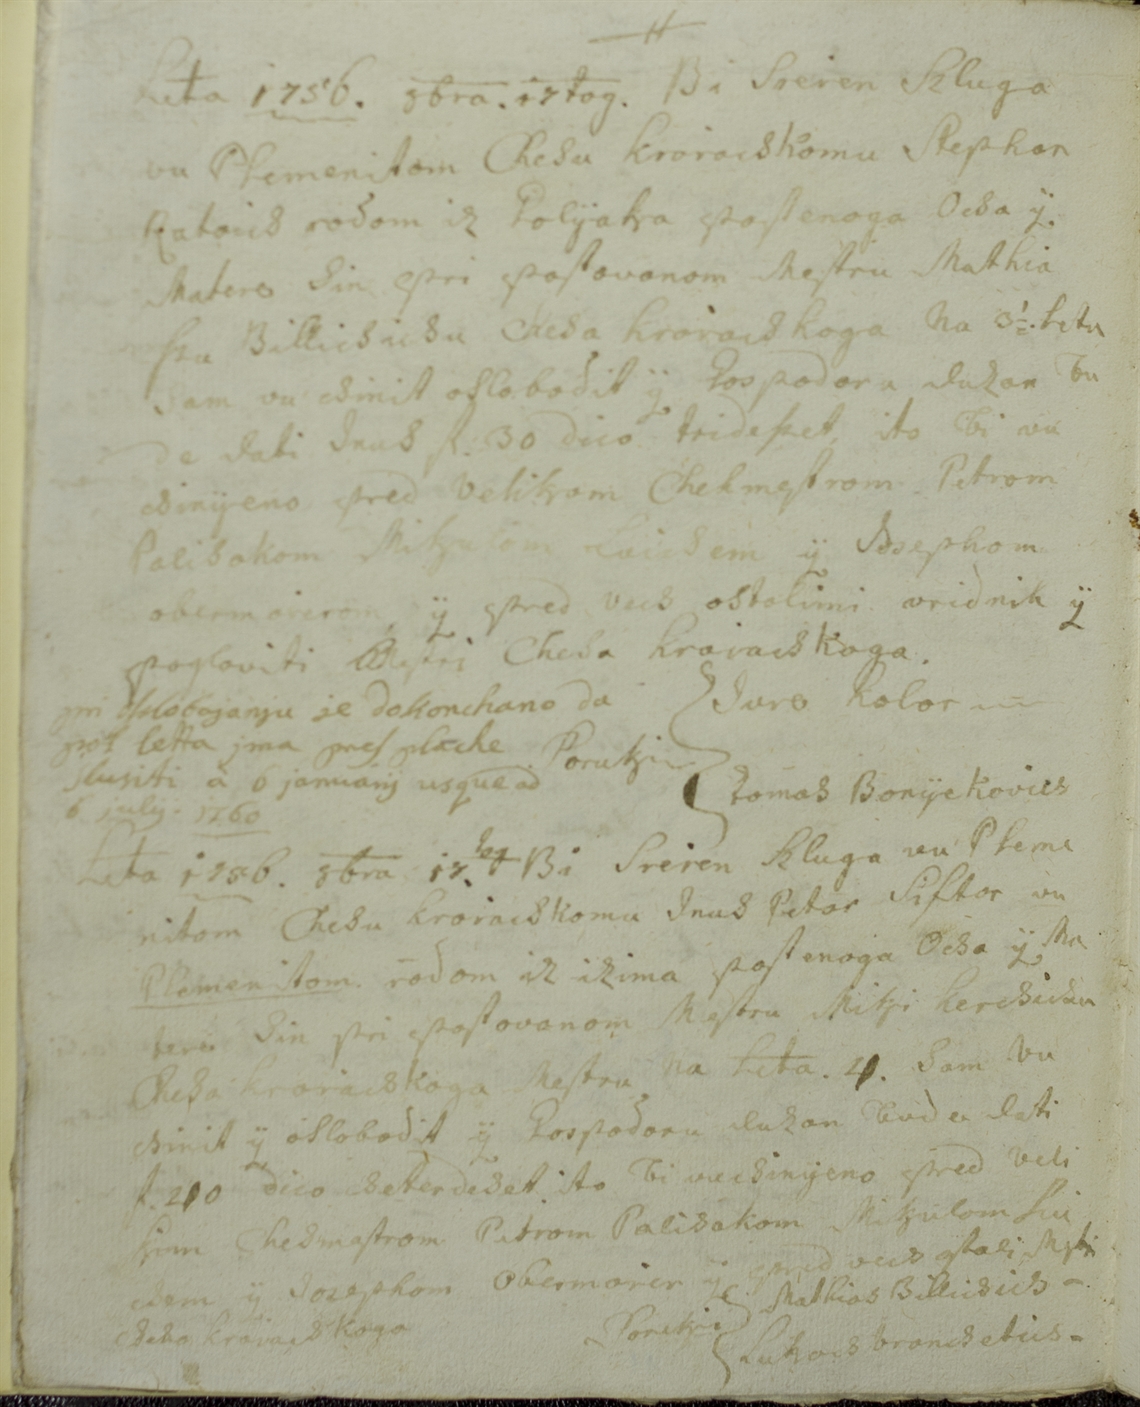 Leta 1756. 8bra. 17tog. Bi Sreiren Skluga
vu Plemenitom Chehu kroiachkomu Stephan
rodom iz postenoga Ocza ÿ
Matere Sin pri postovanom Mestru Mathia
Billichichu Cheha kroiachkoga Na 3½ Leta
Sam vu chinit oslobodit ÿ Gospodaru duzan bu
de dati Inus f. 30 dico trideszet, ito bi vu
chinÿeno pred Velikom Chehmestrom Petrom
Palisakom Mikulom ÿ Josephom
obermoierom, ÿ pred vech ostalimi vridnik ÿ
poglaviti Mestri Cheha kroiachkoga.
pri oslobojanju je dokonchano da
pol letta jma pres plache
slusiti a 6 januarij usque ad
6 julij. 1760
Porutki
Juro Kolar
Tomas Bonÿekovich
Leta 1756. 8bra 17.tog Bi Sreiren Skluga vu Pleme
nitom Chehu kroiachkomu Inus Petar Siftar vu
Plemenitom. rodom iz izima postenoga Ocza ÿ Ma
tere Sin pri postovanom Mestru Miki
Cheha kroiachkoga Mestru Na Leta. 4. Sam Vu
chinit ÿ oslobodit ÿ Gospodaru duzan bude dati
f. 40 dico ito bi vuchinÿeno pred Veli
kim Chehmestrom Petrom Palisakom Mikulom Lui
chem ÿ Josephom Obermoier ÿ pred vech ostali Mestri
Cheha kroiachkoga
Porutki
Mathias Billichich